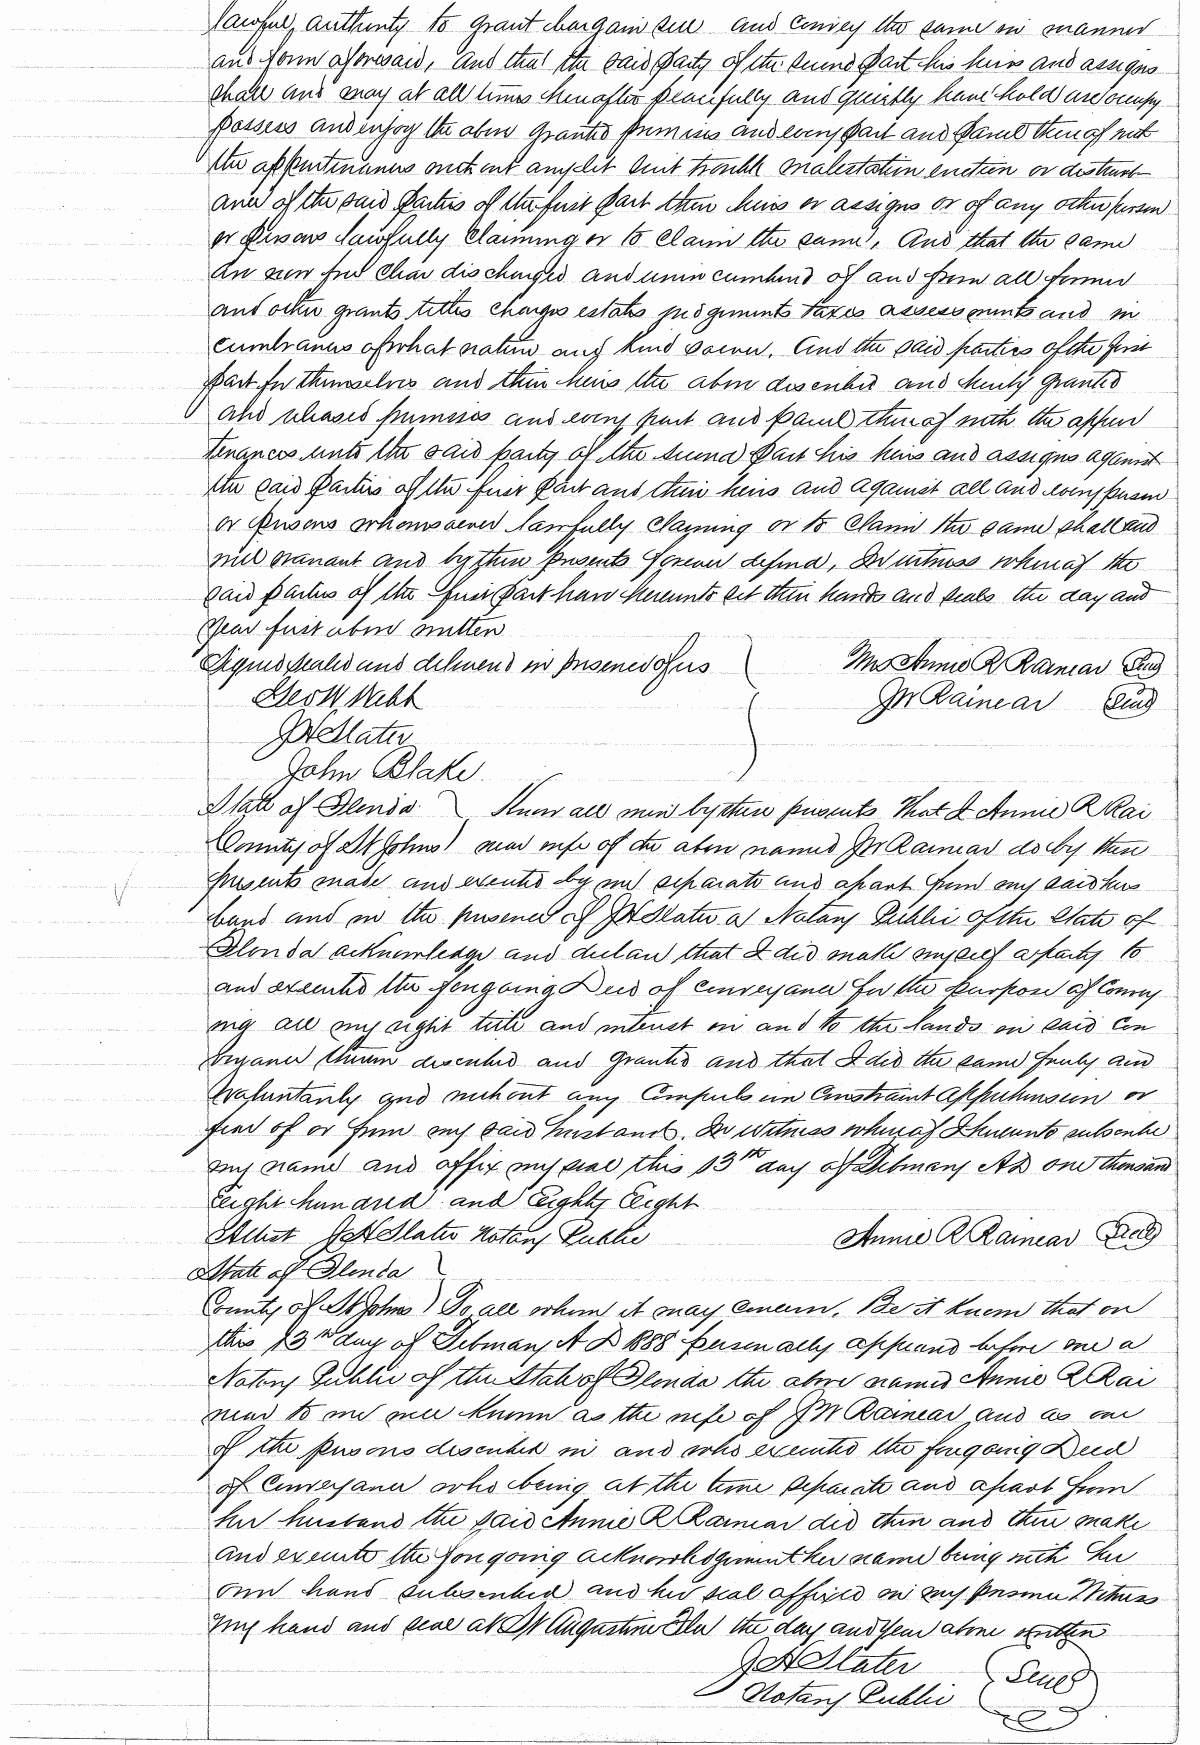 lawful authority to grant bargain sell and convey the same in manner
and form aforesaid, And that the said party of the second part his heirs and assigns
shall and may at all times hereafter peacefully and quietly have hold use occupy
possess and enjoy the above granted premises and every part and parcel thereof with
the appurtenances without any let suit trouble malestation eviction or disturb
ance of the said Parties of the first part their heirs or assigns or of any other person
or persons lawfully claiming or to claim the same, And that the same
are now free clear discharged and unincumbered of and from all former
and other grants titles charges estates judgments taxes assessments and in
cumbrances of what nature and kind soever. And the said parties of the first
part for themselves and their heirs the above described and hereby granted
and released premises and every part and parcel thereof with the appur
tenances unto the said party of the second part his heirs and assigns against
the said Parties of the first part and their heirs and against all and every person
or persons whomsoever lawfully claiming or to claim the same shall and
will warrant and by these presents forever defend, In witness whereof the
said parties of the first part have hereunto set their hands and seals the day and
year first above written
Signed sealed and delivered in presence of us Mrs Annie R Rainear Seal
Geo W Webb J W Rainear Seal
J H Slater
John Blake.
State of Florida Know all men by these presents That I Annie R Rai
County of St Johns near wife of the above named J W Rainear do by these
presents made and executed by me separate and apart from my said hus
band and in the presence of J H Slater a Notary Public of the State of
Florida acknowledge and declare that I did make myself a party to
and executed the foregoing Deed of conveyance for the purpose of convey
ing all my right title and interest in and to the lands in said con
veyance therein described and granted and that I did the same freely and
valuntarily and without any compulsion constraint apprehension or
fear of or from my said husband. In witness whereof I hereunto subscribe
my name and affix my seal this 13th day of February AD one thousand
eight hundred and Eighty Eight
Attest J H Slater Notary Public Annie R Rainear Seal
State of Florida
County of St Johns To all whom it may concern. Be it known that on
this 13th day of February A D 1888 personally appeared before me a
Notary Public of the State of Florida the above named Annie R Rai
near to me well known as the wife of J W Rainear and as one
of the persons described in and who executed the foregoing Deed
of conveyance who being at the time separate and apart from
her husband the said Annie R Rainear did then and there make
and execute the foregoing acknowledgment her name being with her
own hand subscribed and her seal affixed in my presence Witness
my hand and seal at St Augustine Fla the day and year above written
J H Slater Seal
Notary Public